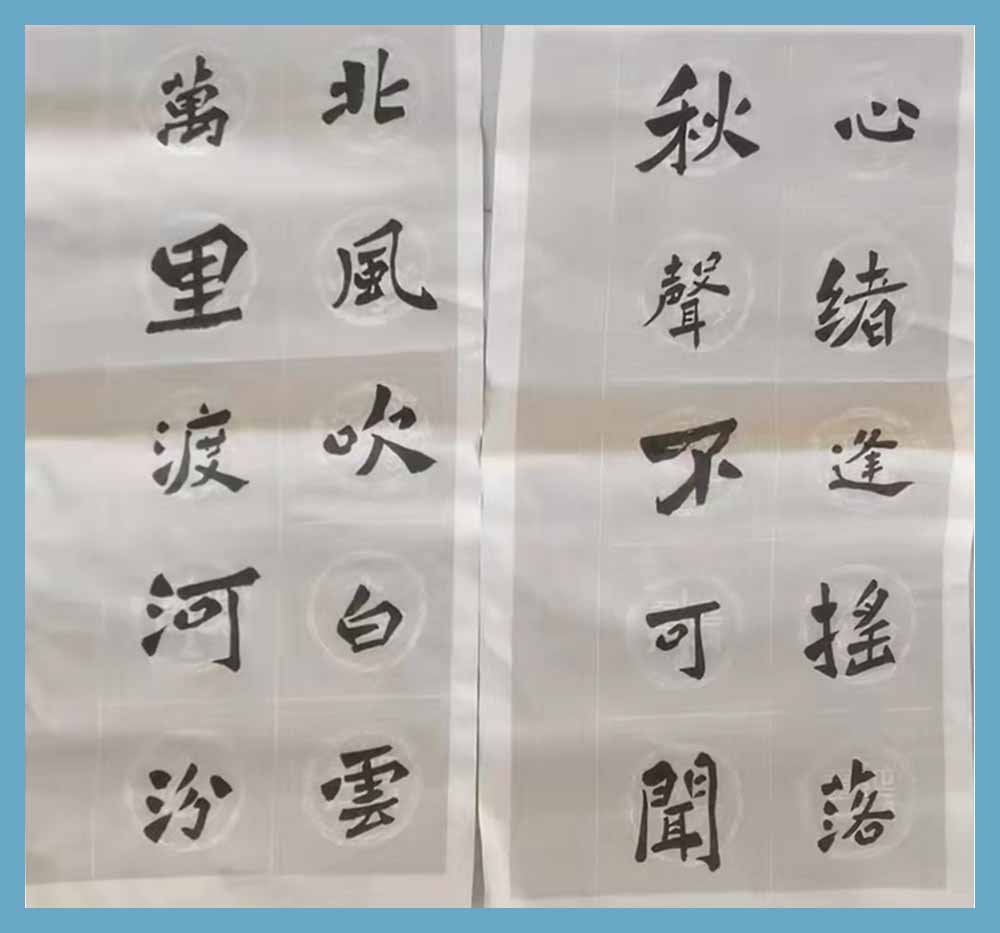 北風吹白雲
萬里渡河汾
心緒逢搖落
秋聲不可聞